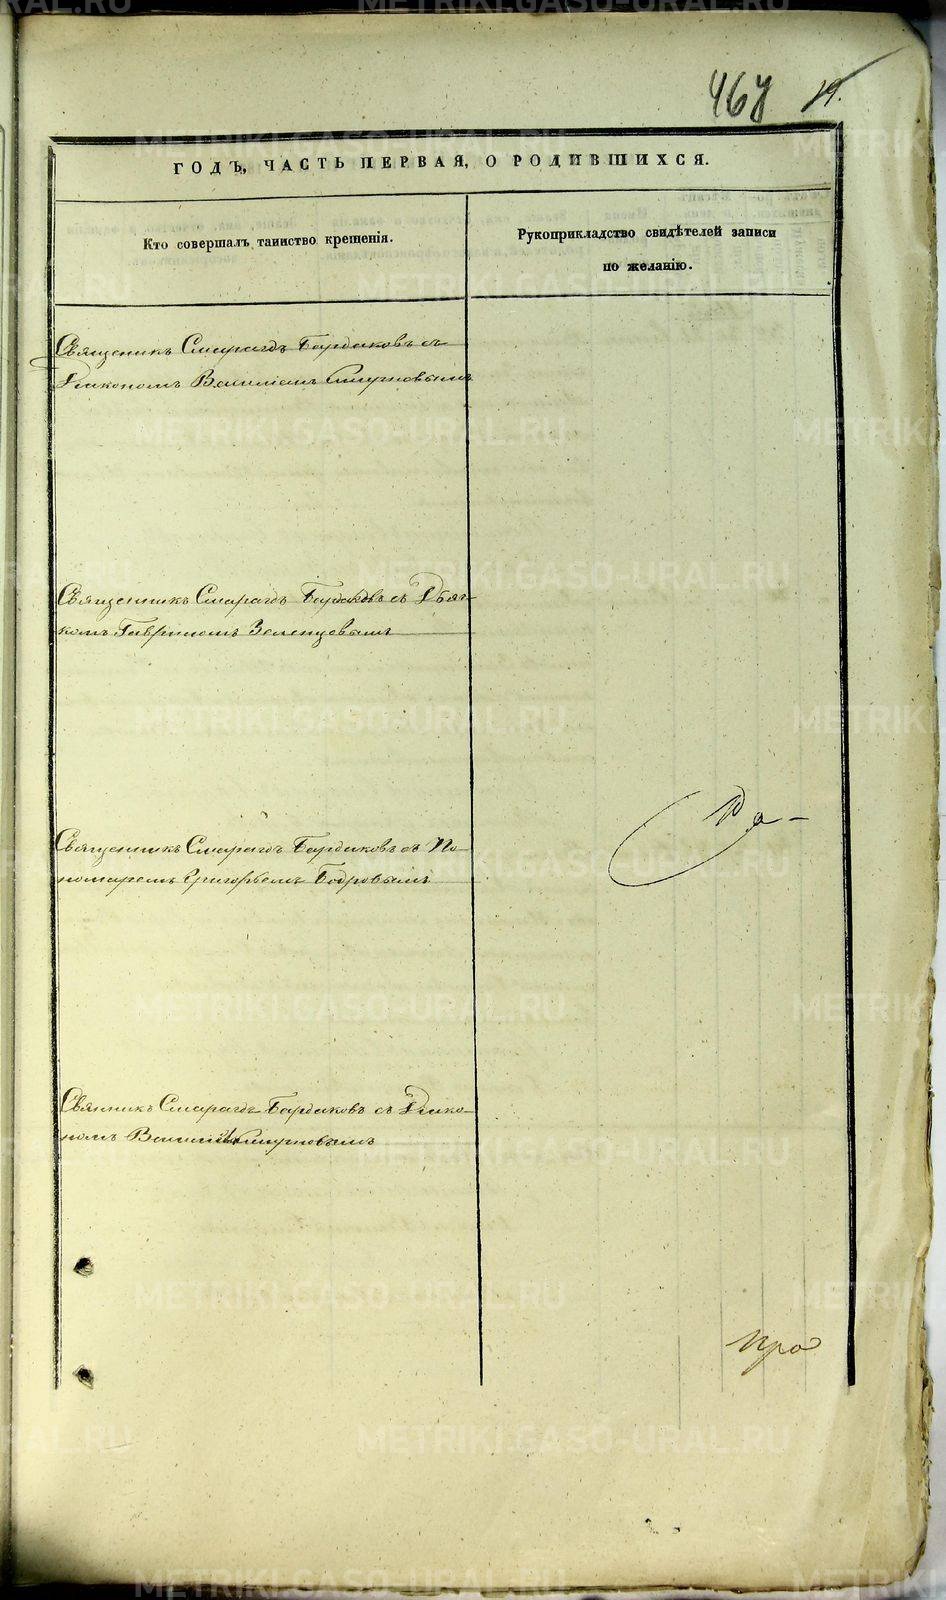 467 19.
ГОДЪ, ЧАСТЬ ПЕРВАЯ, О РОДИВШИХСЯ.
Кто совершалъ таинство крещенія.
Рукоприкладство свидѣтелей записи
по желанію.
Священникъ Смарагдъ Бардаковъ съ
Діакономъ Василіемъ Смирновымъ
Священникъ Смарагдъ Бардаковъ съ Дьяч-
комъ Гавріиломъ Зеленцовымъ
Священникъ Смарагдъ Бардаковъ съ По-
номаремъ Григорьемъ Бодровымъ
Свянникъ Смарагдъ Бардаковъ съ Діако-
номъ Василіемъ Смирновымъ
METRIKI.GASO-URAL.RU